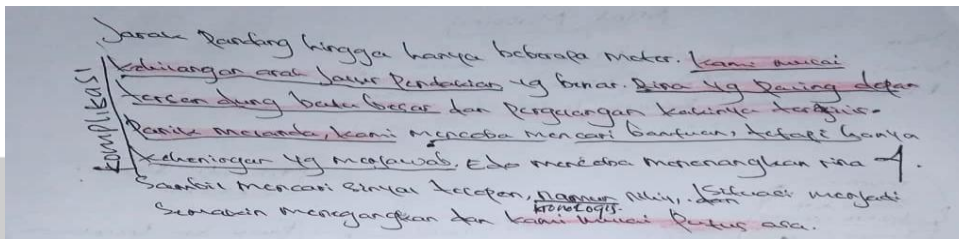 Jarak Pandang hingga hanya beberapa meter. kami mulai
kehilangan arah jalur Pendakian yg benar. Rina yg Paling depan
tersandung batu besar dan Pergelangan kakinya
Panik melanda, kami mencoba mencari bantuan, tetapi hanya
keheningan yg menjawab. Edo mencoba menenangkan rina
Sambil mencari sinyal telepon, namun nihil, Situasi menjadi
kronologis.
Semakin menegangkan dan kami mulai Putus asa.
komplikasi